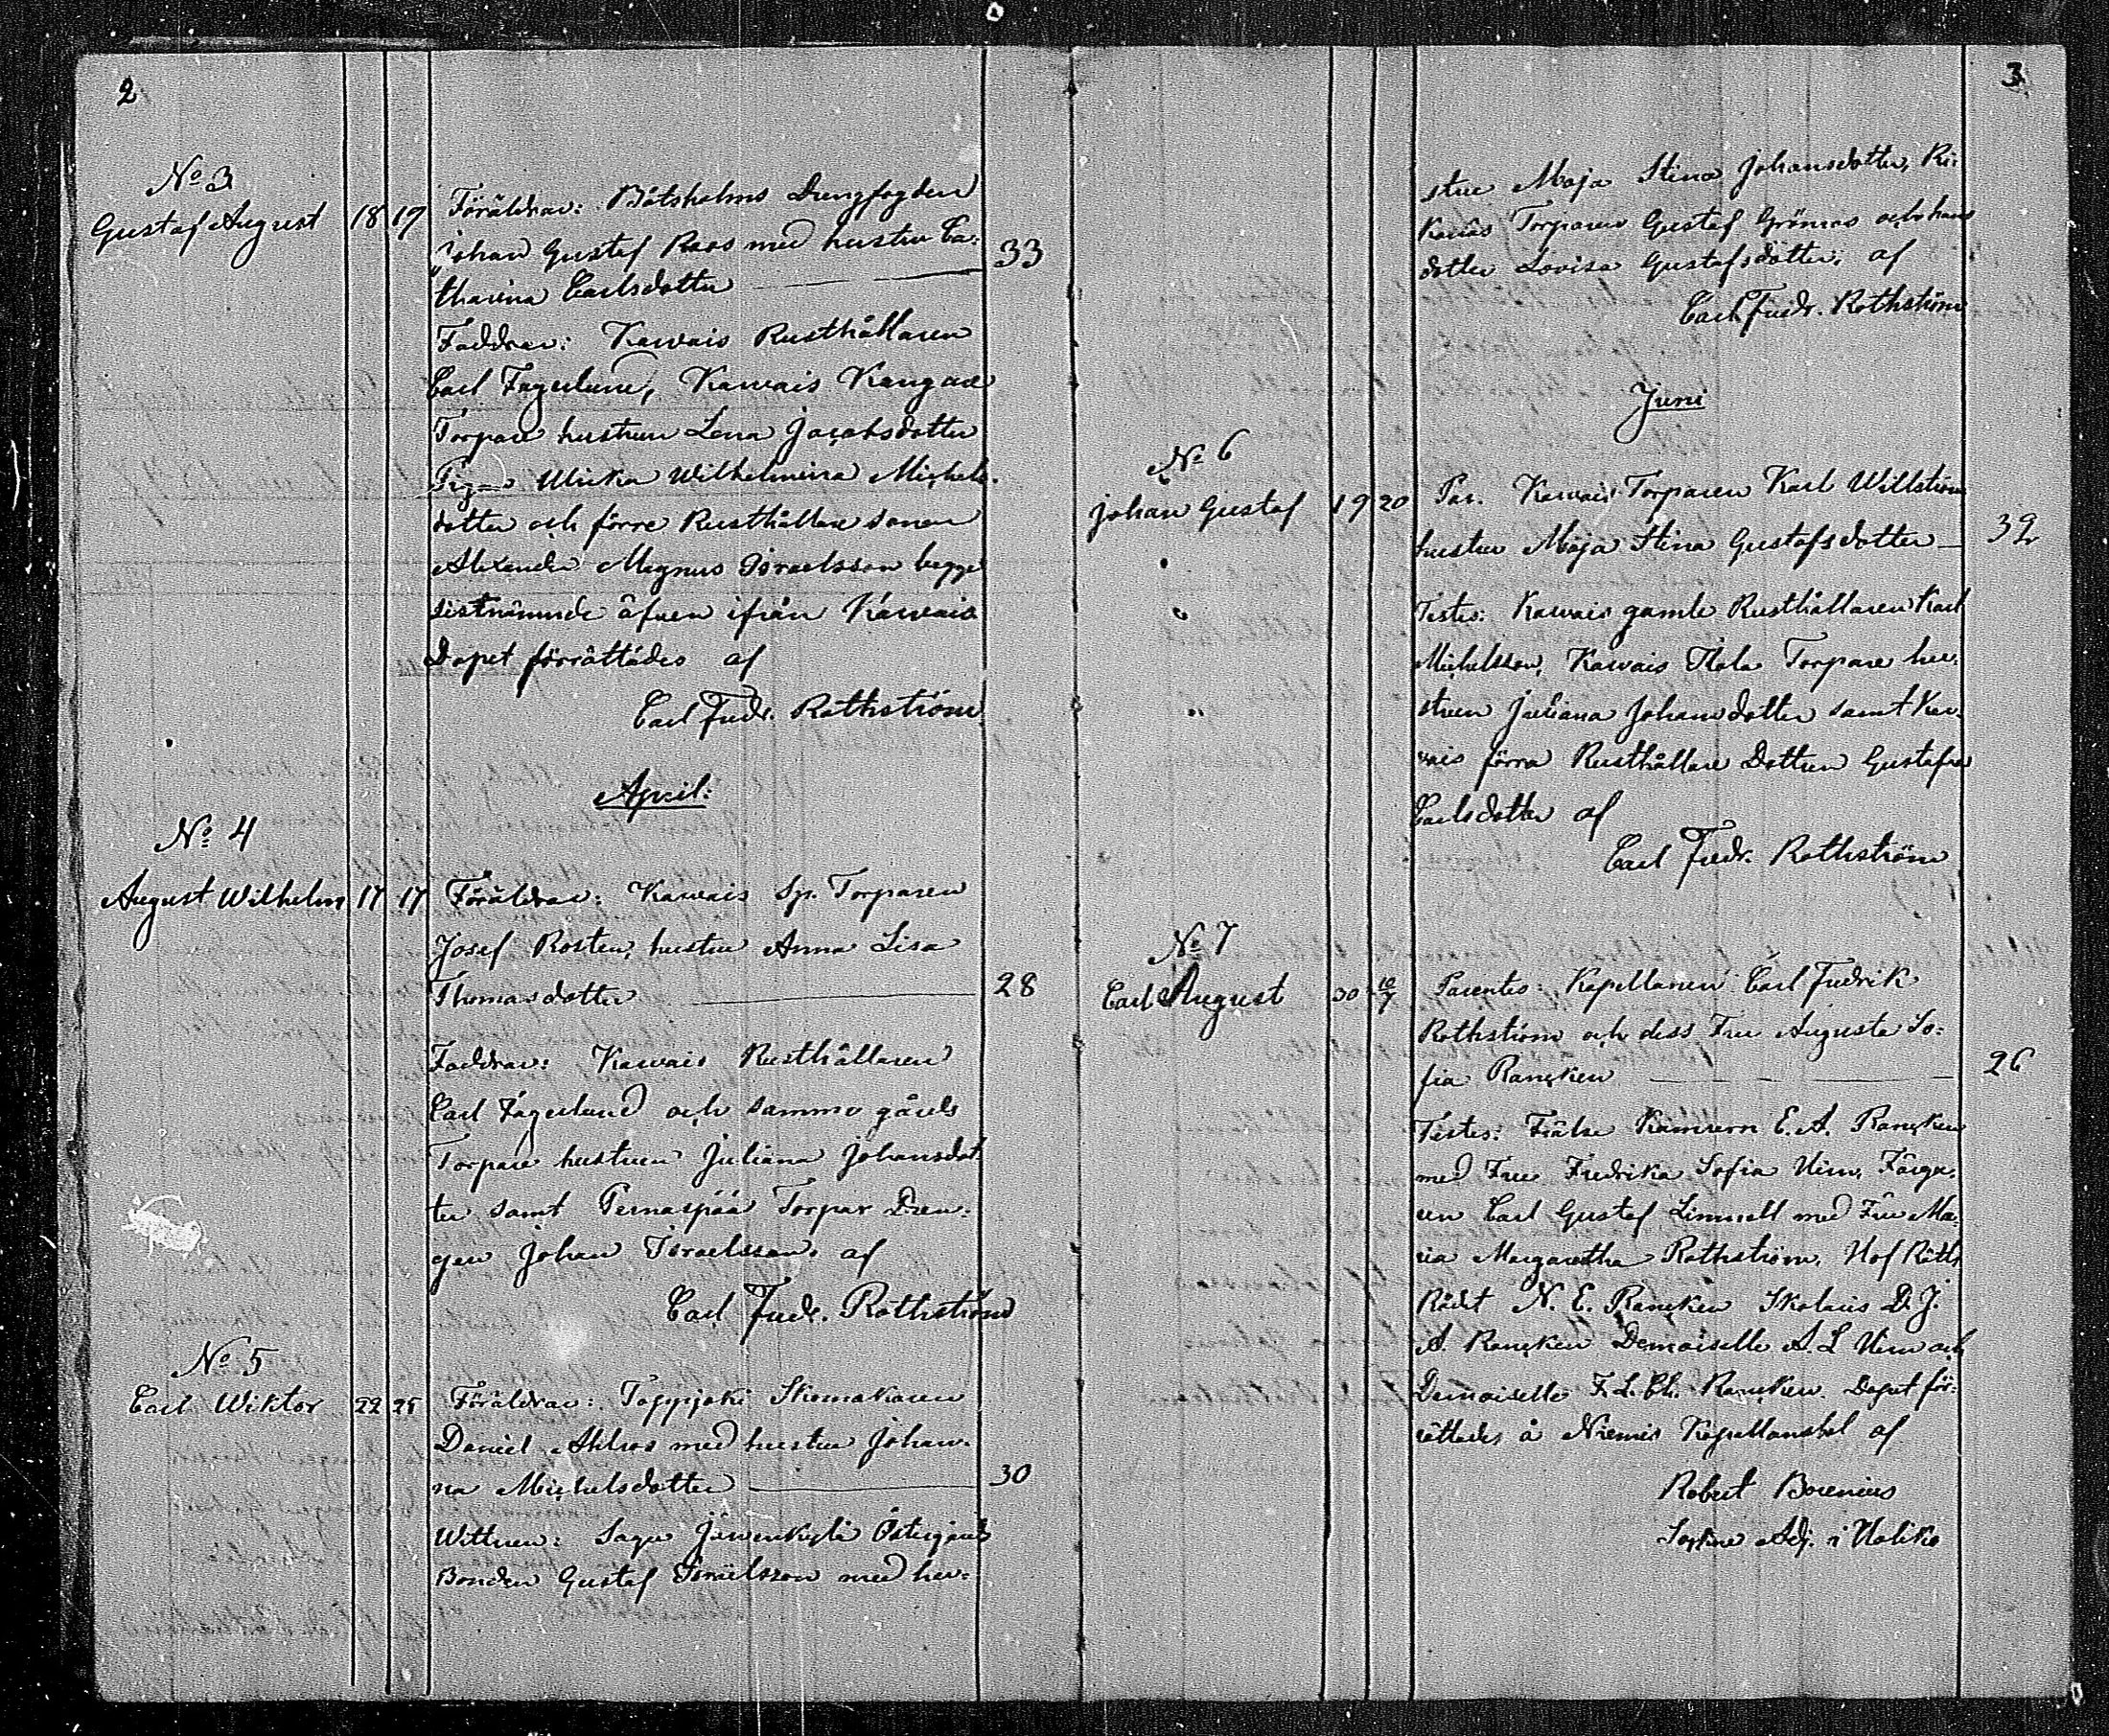 2
No 3
Gustaf August 18 19 Föräldrar: Båtsholms Dengfogden
Johan Gustaf Roos med hustru Ca-
tharina Carlsdotter — 33
Faddrar: Karvais Rusthållaren
Carl Fagerlund, Karvais
Torpare hustrun Lena Jacobsdotter
Pigan Ulrika Wilhelmina Michels-
dotter och förre Rusthållare sonen
Alexander Magnus Israelsson begge
sistnämnde äfven ifrån Karvais
Dopet förrättades af
Carl Fredr. Rothström
April:
No 4
August Wilhelm 17 17 Föräldrar: Karvais Sp. Torparen
Josef Rosten, hustru Anna Lisa
Thomasdotter — 28
Faddrar: Karvais Rusthållaren
Carl Fagerlund och samma gårds
Torpare hustrun Juliana Johansdot-
ter samt Pernaspää Torpar Dren-
gen Johan Israelsson. af
Carl Fredr. Rothström
No 5
Carl Wiktor 22 25 Föräldrar: Toppjoki Skomakaren
Daniel med hustru Johan-
na Michelsdotter — 30
Wittnen: Sagu Järvenkylä Östergårds
Bonden Gustaf Israelsson med hu-
3
stru Maja Stina Johansdotter, Ri-
Torparen Gustaf Grönroos och hans
dotter Lovisa Gustafsdotter, af
Carl Fredr. Rothström
Juni
No 6
Johan Gustaf 19 20 Par. Karvais Torparen Karl Willström
hustru Maja Stina Gustafsdotter — 39
Testes: Karvais gamle Rusthållaren Karl
Michelsson, Karvais Torpare hu-
strun Juliana Johansdotter samt Kar-
vais förra Rusthållare Dottren Gustafva
Carlsdotter af
Carl Fredr. Rothström
No 7
Carl August 30 10/7 Parentes: Kapellanen Carl Fredrik
Rothström och dess Fru Augusta So-
fia Rancken — 26
Testes: Frälse Kamrern E. A. Rancken
med Fru Fredrika Sofia Färga-
ren Carl Gustaf Limnell med Fru Ma-
ria Margaretha Rothström, Hof Rätts
Rådet N. E. Rancken Skolaris D. J.
A. Rancken Demoiselle A. L och
Demoiselle F. L. Ch. Rancken. Dopet för-
rättades å Niemis Kapellansbol af
Robert Borenius
Adj. i Haliko